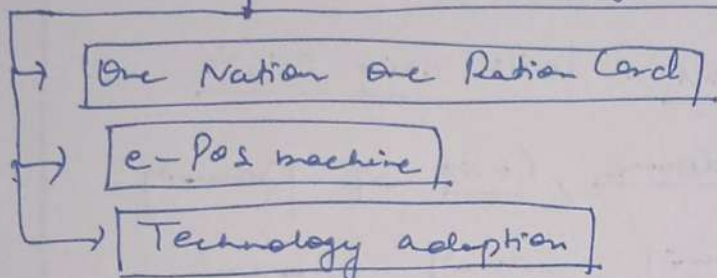 One Nation One Ration Card
e-POS machine
Technology adoption